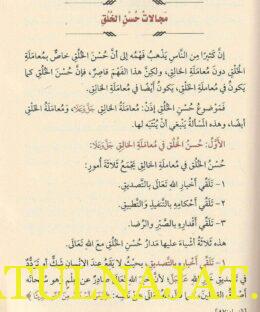 مجالات حُسْن الخُلُق
إن كثيرًا مِنَ النَّاسِ يَذْهَبُ فَهْمُه إلى أنَّ حُسْنَ الخُلُقِ خاصٌّ بمُعامَلةِ
الخَلْقِ دونَ مُعامَلةِ الخالِقِ، ولكنَّ هذا الفَهْمَ قاصِرٌ، فإنَّ حُسْنَ الخُلُقِ كما
يَكونُ في مُعامَلةِ الخَلْقِ، يَكونُ أيضًا في مُعامَلةِ الخالِقِ.
فَمَوْضوعُ حُسْنِ الخُلُقِ إذَن: مُعامَلةُ الخالِقِ، ومُعامَلةُ الخَلْقِ
أيضًا، وهذه المسألةُ يَنْبغي أن يُنْتَبَه لها.
الأوَّلُ: حُسْنُ الخُلُق في مُعامَلةِ الخالِقِ
حُسْنُ الخُلُقِ في مُعامَلةِ الخالِقِ يَجْمَعُ ثَلاثةَ أُمورٍ:
١- تَلَقِّي أَخْبارِ اللهِ تَعالَى بالتَّصْديقِ.
٢- تَلَقِّي أحْكامِه بالتَّنْفيذِ والتَّطْبيقِ.
٣- تَلَقِّي أقْدارِه بالصَّبْرِ والرِّضا.
هذه ثَلاثةُ أشْياءَ عليها مَدارُ حُسْنِ الخُلُقِ معَ اللهِ تَعالَى.
١- تَلَقِّي أخْبارِه بالتَّصْديقِ، بحيثُ لا يَقَعُ عندَ الإنْسانِ شَكٌّ أو تَرَدُّدٌ
ATULNAJAT.